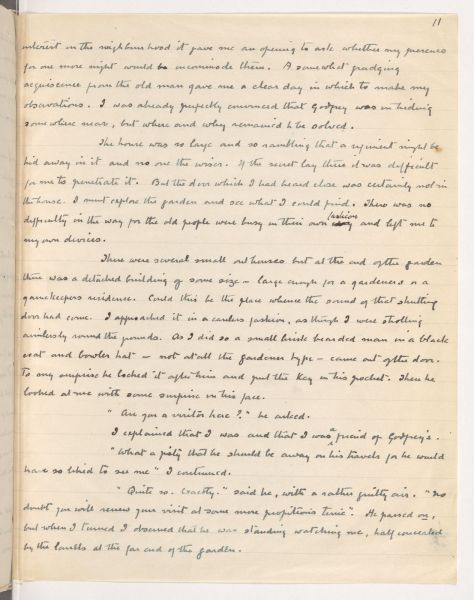 11
interest in the neighbourhood it gave me an opening to ask whether my presence
for one more night would be incommode them. A somewhat grudging
acquiescence from the old man gave me a clear day in which to make my
observations. I was already perfectly convinced that Godfrey was in hiding
somewhere near, but where and why remained to be solved.
The house was so large and so rambling that a regiment might be
hid away in it and no one the wiser. If the secret lay there it was difficult
for me to penetrate it. But the door which I had heard close was certainly not in
the house. I must explore the garden and see what I could find. There was no
fashion
difficulty in the way for the old people were busy in their own and left me to
my own devices.
There were several small outhouses but at the end of the garden
there was a detached building of some size – large enough for a gardener's or a
gamekeepers residence. Could this be the place whence the sound of that shutting
door had come. I approached it in a careless fashion, as though I were strolling
aimlessly round the grounds. As I did so a small brisk bearded man in a black
coat and bowler hat – not at all the gardener type – came out of the door.
To my surprise he locked it after him and put the key in his pocket. Then he
looked at me with some surprise on his face.
"Are you a visitor here?" he asked.
I explained that I was and that I was a friend of Godfrey's.
"What a pity that he should be away on his travels for he would
have so liked to see me" I continued.
"Quite so. Exactly." said he, with a rather guilty air. "No
doubt you will renew your visit at some more propitious time". He passed on,
but when I turned I observed that he was standing watching me, half concealed
by the laurels at the far end of the garden.